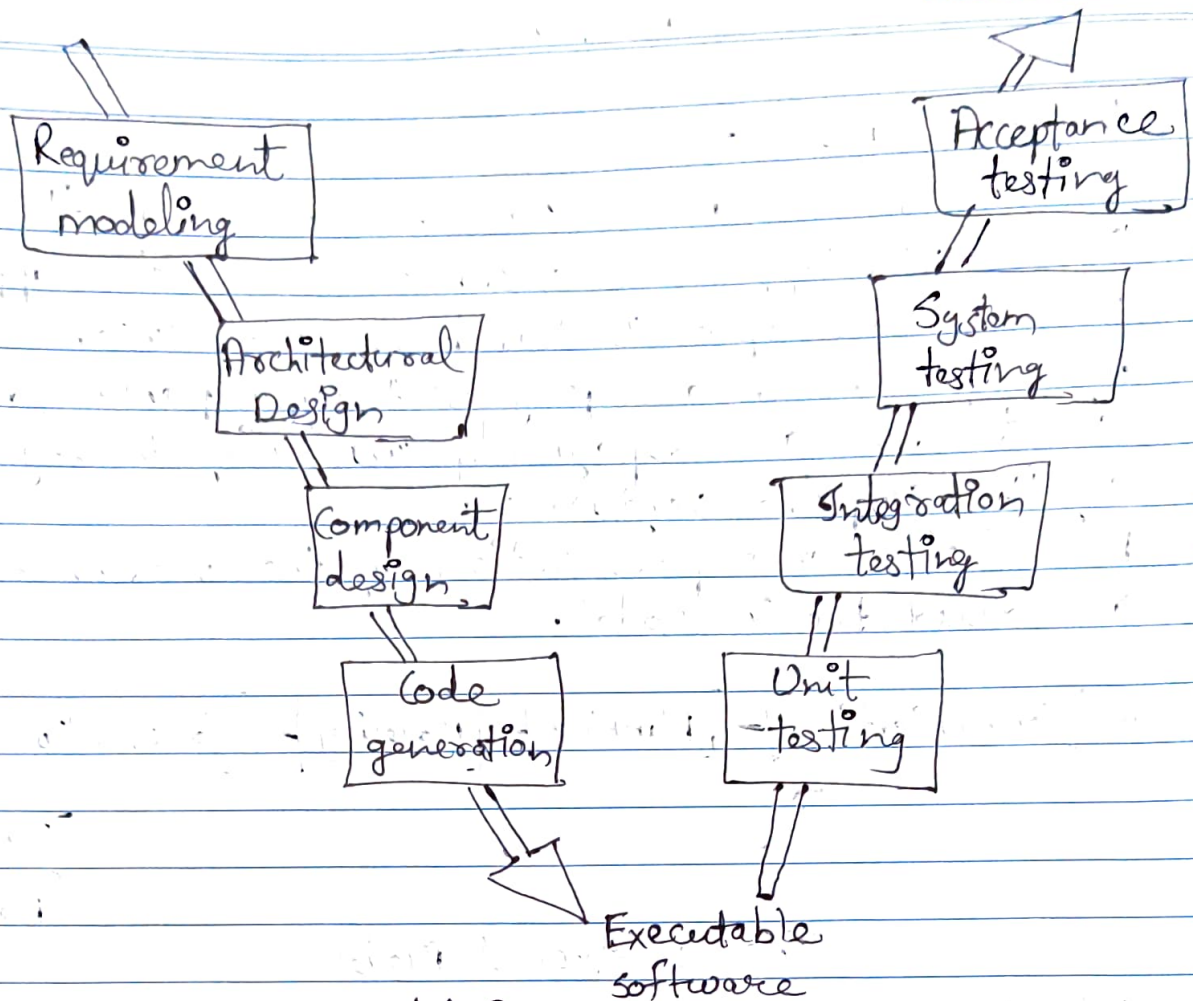 Requirement
modeling
Architectural
Design
Component
design
Code
generation
Executable
software
Unit
testing
Integration
testing
System
testing
Acceptance
testing